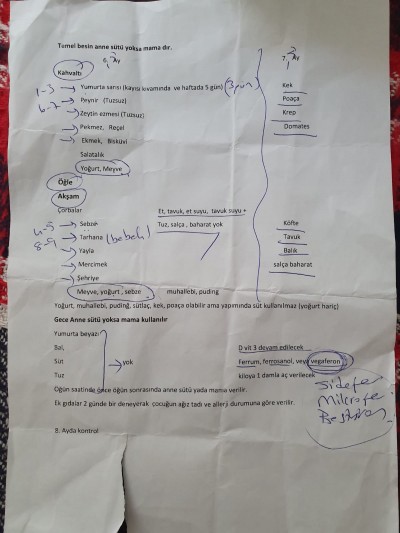 Temel besin anne sütü yoksa mama dır.
Kahvaltı
1-3 Yumurta sarısı (kayısı kıvamında ve haftada 5 gün) (3 gün) Kek
Peynir (Tuzsuz) Poaça
Zeytin ezmesi (Tuzsuz) Krep
Pekmez, Reçel Domates
Ekmek, Bisküvi
Salatalık
Yoğurt, Meyve
Öğle
Akşam
Çorbalar Et, tavuk, et suyu, tavuk suyu +
Sebze Tuz, salça, baharat yok Köfte
Tarhana (bebek) Tavuk
Yayla Balık
Mercimek salça baharat
Şehriye
Meyve, yoğurt, sebze muhallebi, puding
Yoğurt, muhallebi, puding, sütlaç, kek, poaça olabilir ama yapımında süt kullanılmaz (yoğurt hariç)
Gece Anne sütü yoksa mama kullanılır
Yumurta beyazı
Bal, D vit 3 devam edilecek
Süt yok Ferrum, ferrosanol, veya vegaferon
Tuz kiloya 1 damla aç verilecek
Öğün saatinde önce öğün sonrasında anne sütü yada mama verilir.
Ek gıdalar 2 günde bir deneyerek çocuğun ağız tadı ve allerji durumuna göre verilir.
8. Ayda kontrol